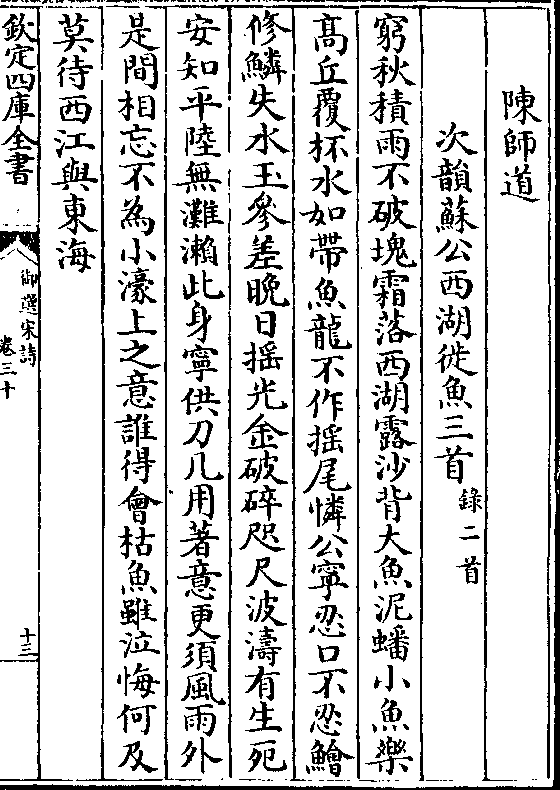 陳師道
次韻蘇公西湖徙魚三首 錄二首
窮秋積雨不破塊霜落西湖露沙背大魚泥蟠小魚樂
髙丘覆杯水如帶魚龍不作揺尾憐公寧忍口不忍鱠
修鱗失水玉參差晩日揺光金破碎咫尺波濤有生死
安知平陸無灘瀨此身寧供刀几用著意更須風雨外
是間相忘不為小濠上之意誰得會枯魚雖泣悔何及
莫待西江與東海
欽定四庫全書
御選宋詩
卷三十
十三